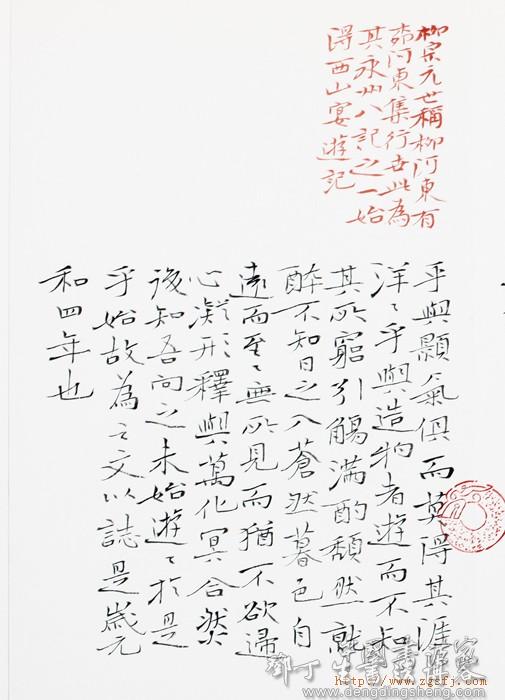 柳宗元世稱柳河東有
河東集行世此為
其永州八記之一始
得西山宴遊記
乎與顥氣俱而莫得其涯
洋〻乎與造物者遊而不知
其所窮引觴滿酌頹然就
醉不知日之入蒼然暮色自
遠而至〻無所見而猶不欲歸
心凝形釋與萬化冥合然
後知吾向之未始遊〻於是
乎始故為之文以誌是歲元
和四年也
http://www.zgsfj.com
www.dengdingsheng.com